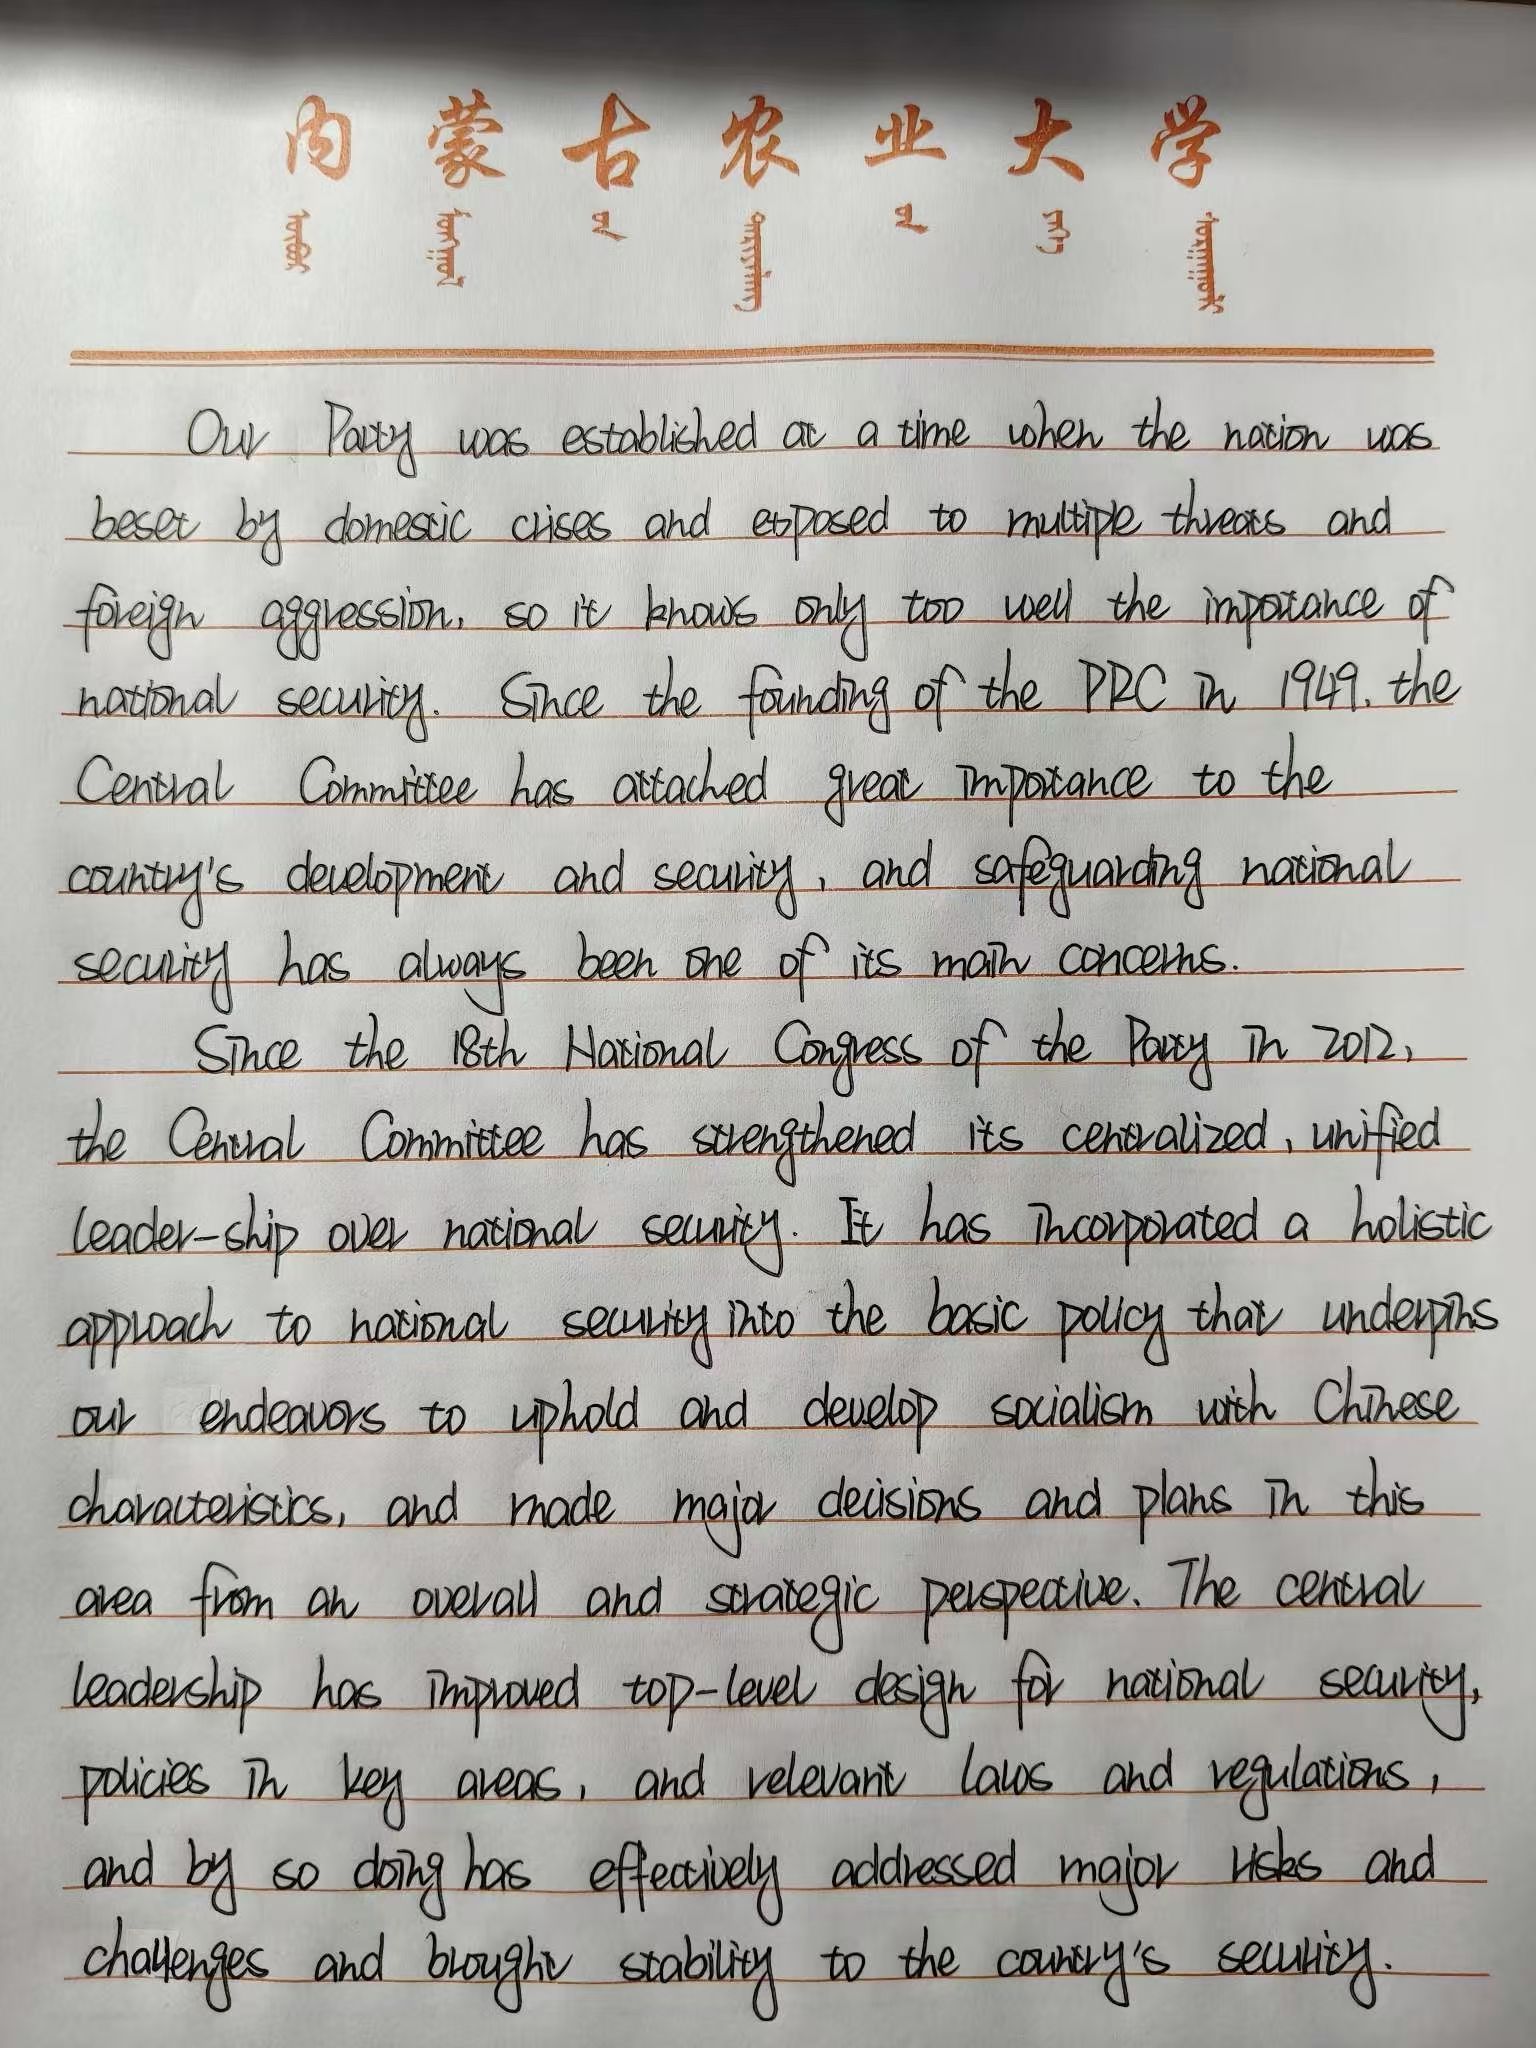 内蒙古农业大学
Our Party was established at a time when the nation was
beset by domestic crises and exposed to multiple threats and
foreign aggression, so it knows only too well the importance of
national security. Since the founding of the PRC in 1949, the
Central Committee has attached great importance to the
country's development and security, and safeguarding national
security has always been one of its main concerns.
Since the 18th National Congress of the Party in 2012,
the Central Committee has strengthened its centralized, unified
leader-ship over national security. It has incorporated a holistic
approach to national security into the basic policy that underpins
our endeavors to uphold and develop socialism with Chinese
characteristics, and made major decisions and plans in this
area from an overall and strategic perspective. The central
leadership has improved top-level design for national security,
policies in key areas, and relevant laws and regulations,
and by so doing has effectively addressed major risks and
challenges and brought stability to the country's security.